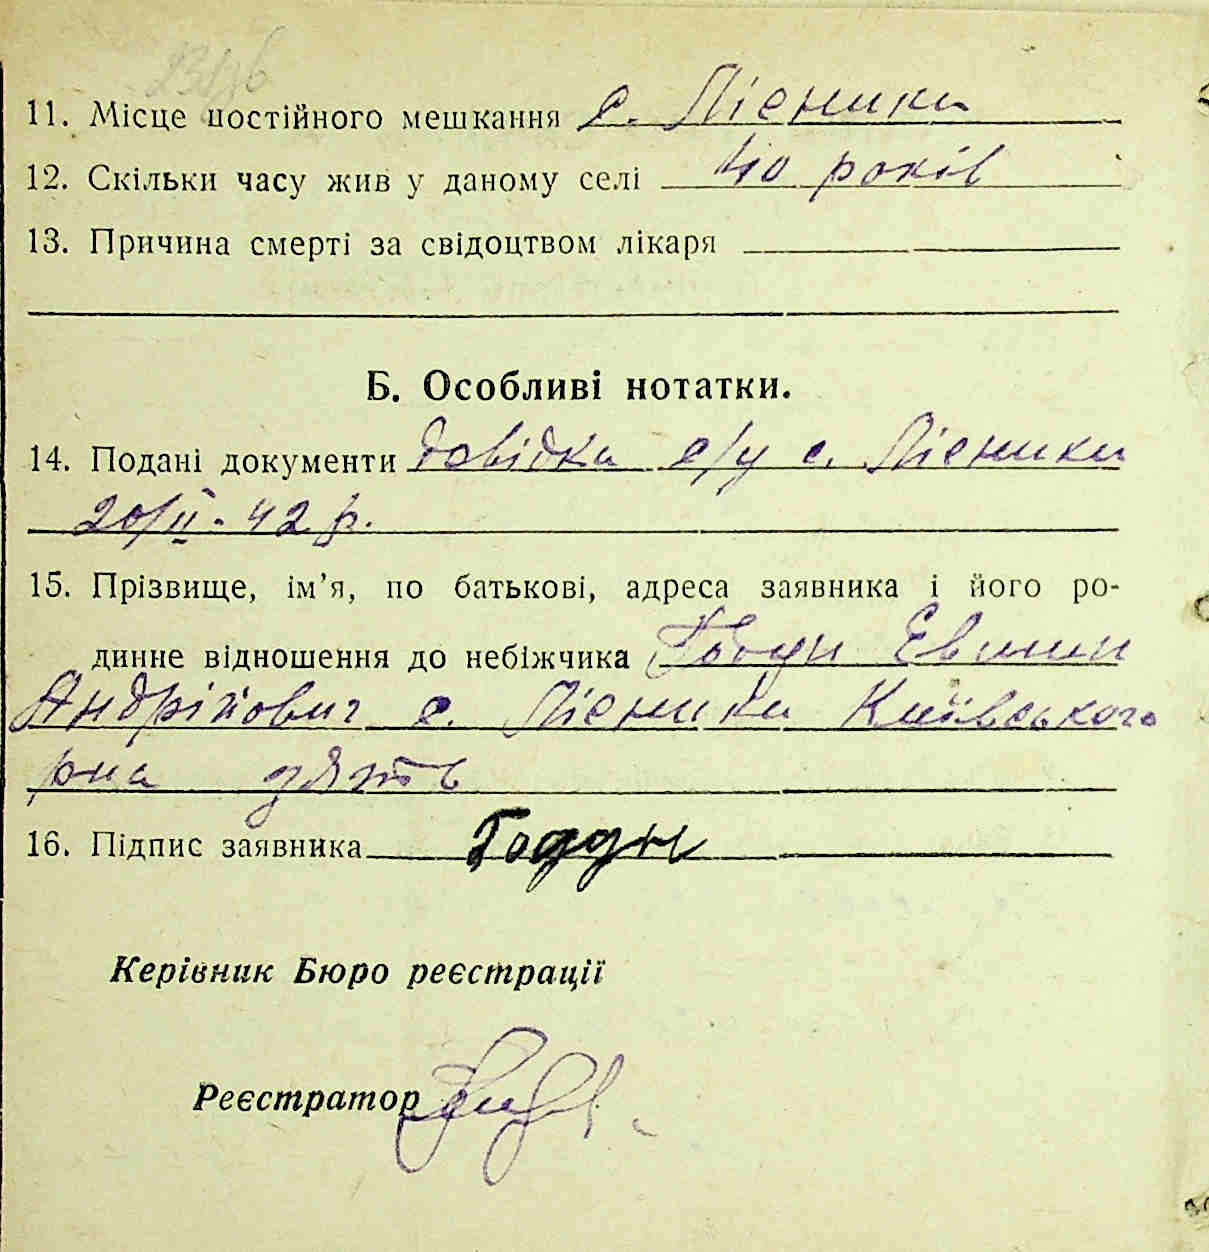 11. Місце постійного мешкання с. Лісники
12. Скільки часу жив у даному селі 40 років
13. Причина смерті за свідоцтвом лікаря
Б. Особливі нотатки.
14. Подані документи довідка с/у с. Лісники
20/II - 42 р.
15. Прізвище, ім'я, по батькові, адреса заявника і його ро-
динне відношення до небіжчика
Андрійович с. Лісники Київського
р-на зять
16. Підпис заявника
Керівник Бюро реєстрації
Реєстратор